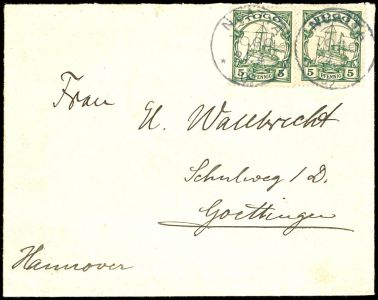 TOGO TOGO
5 PFENNIG 5 5 PFENNIG 5
Frau
H. Wallbrecht
Schulweg 1 D.
Goettingen
Hannover